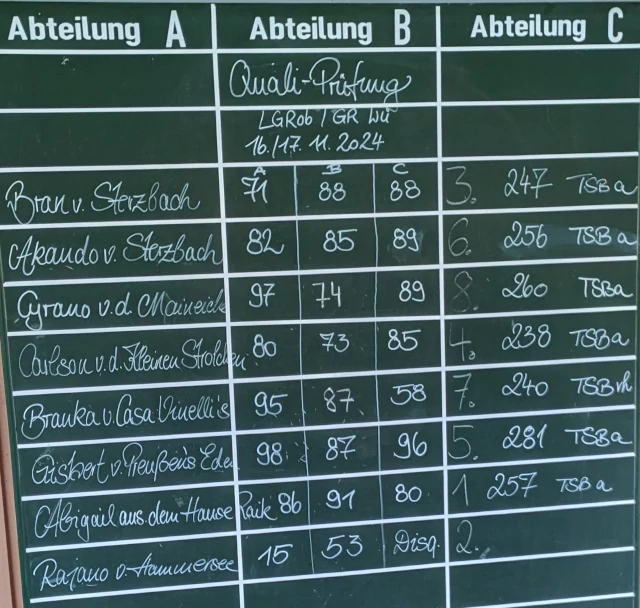 Abteilung A Abteilung B Abteilung C
Quali-Prüfung
LGRob / GR Wü
16./17. 11. 2024
A B C
Bran v. Sterzbach 71 88 88 3. 247 TSB a
Akando v. Sterzbach 82 85 89 6. 256 TSB a
Cyrano v. d. Maineick 97 74 89 8. 260 TSB a
Carlson v. d. Kleinen Strolchen 80 73 85 4. 238 TSB a
Branka v. Casa Vinelli's 95 87 58 7. 240 TSB vh
Giskert v. Preußens Eden 98 87 96 5. 281 TSB a
Abigail aus dem Hause Raik 86 91 80 1 257 TSB a
Rajano v. Hammersee 15 53 Disq. 2.